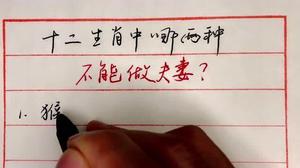 十二生肖中哪两种
不能做夫妻？
1. 猴